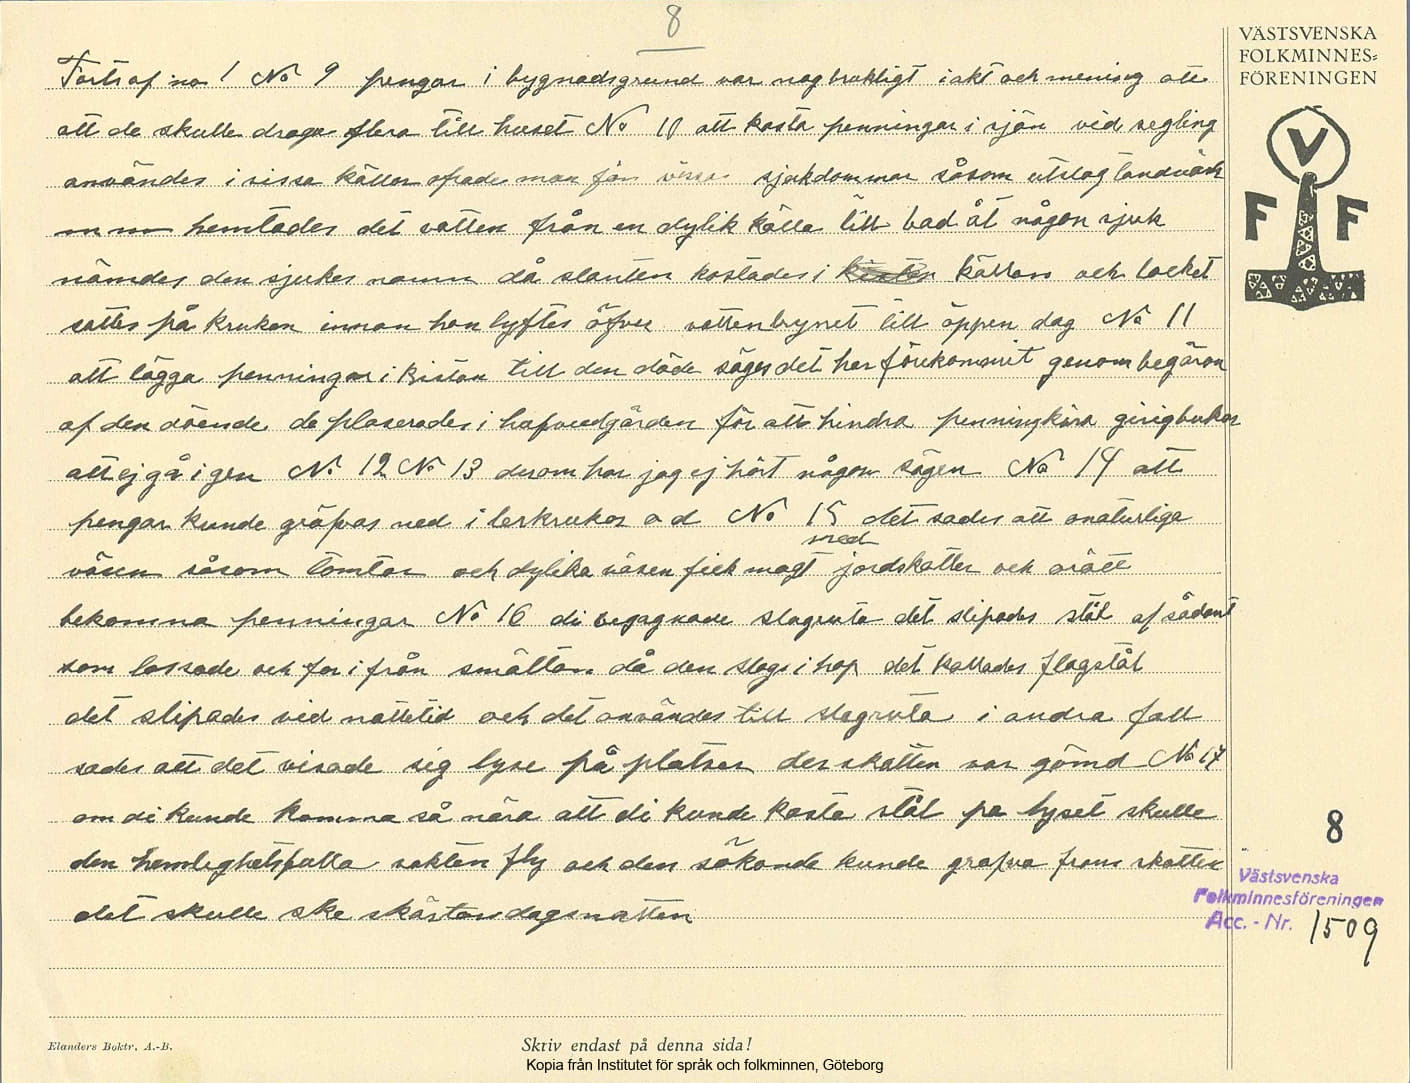 8
VÄSTSVENSKA
FOLKMINNES=
FÖRENINGEN
V
F F
Forts af no 1 No 9 pengar i bygnadsgrund var nog brukligt i akt och mening att
att de skulle draga flera till huset No 10 att kasta penningar i sjön vid segling
användes i vissa källor ofrade man för vissa sjukdommar såsom utslag tandvärk
hemtades det vatten från en dylik källa till bad åt någon sjuk
nämdes den sjukes namn då slanten kastades i källan och locket
sattes på krukan innan han lyftes öfver vattenbrynet till öppen dag No 11
att lägga penningar i kistan till den döde säges det har förekommit genom begäran
af den döende de plaserades i hufvudgärden för att hindra penningkära girigbukar
att ej gå igen No 12 No 13 derom har jag ej hört någon sägen No 14 att
pengar kunde gräfvas ned i lerkrukor o d No 15 det sades att onaturliga
med
väsen såsom tomtar och dylika väsen fick magt jordskatter och orätt
bekomna penningar No 16 di begagnade slagruta det slipades stål af sådant
som lossade och for ifrån smältan då den slogs i hop det kallades flogstål
det slipades vid nattetid och det användes till slagruta i andra fall
sades att det visade sig lyse på platsen der skatten var gömd No 17
om di kunde komma så nära att di kunde kasta stål på lyset skulle
den hemlighetsfulla vakten fly och den sökande kunde grafva fram skatten
det skulle ske skärtorsdagsnatten
8
Västsvenska
Folkminnesföreningen
Acc. - Nr. 1509
Elanders Boktr. A.-B.
Skriv endast på denna sida!
Kopia från Institutet för språk och folkminnen, Göteborg